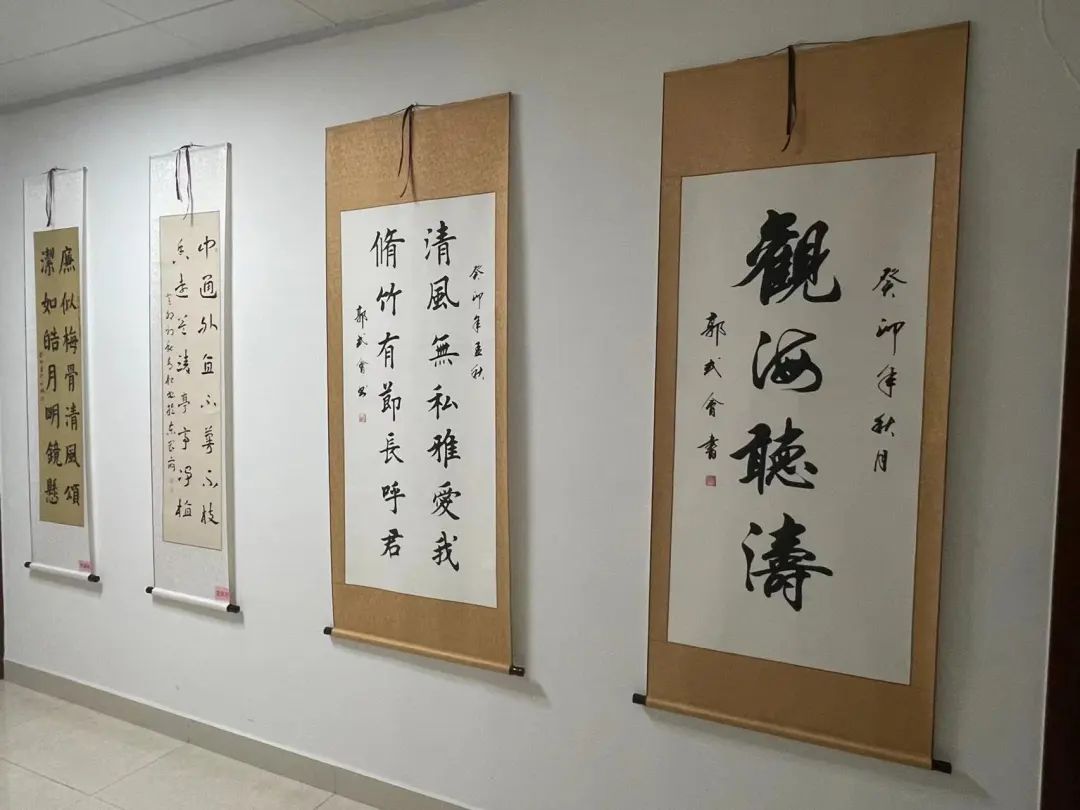 癸卯年秋月
觀海聽濤
郭武會書
癸卯年孟秋
清風無私雅愛我
脩竹有節長呼君
郭武會书
中通外直不蔓不枝
香遠益清亭亭淨植
廉似梅骨清風頌
潔如皓月明鏡懸